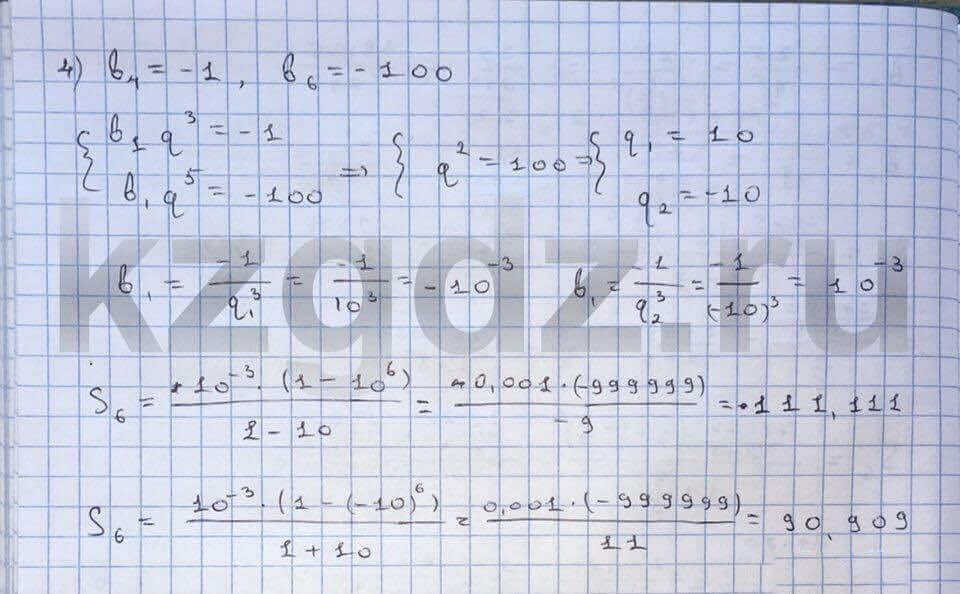 4) b₄ = -1, b₆ = -100
{ b₁q³ = -1 b₁q⁵ = -100 => { q² = 100 => { q₁ = 10 q₂ = -10
b₁ = -1/q₁³ = -1/10³ = -10⁻³ b₁ = -1/q₂³ = -1/(-10)³ = 10⁻³
S₆ = -10⁻³·(1-10⁶)/(1-10) = -0,001·(-999999)/(-9) = -111,111
S₆ = 10⁻³·(1-(-10)⁶)/(1+10) = 0,001·(-999999)/11 = 90,909
kzgdz.ru